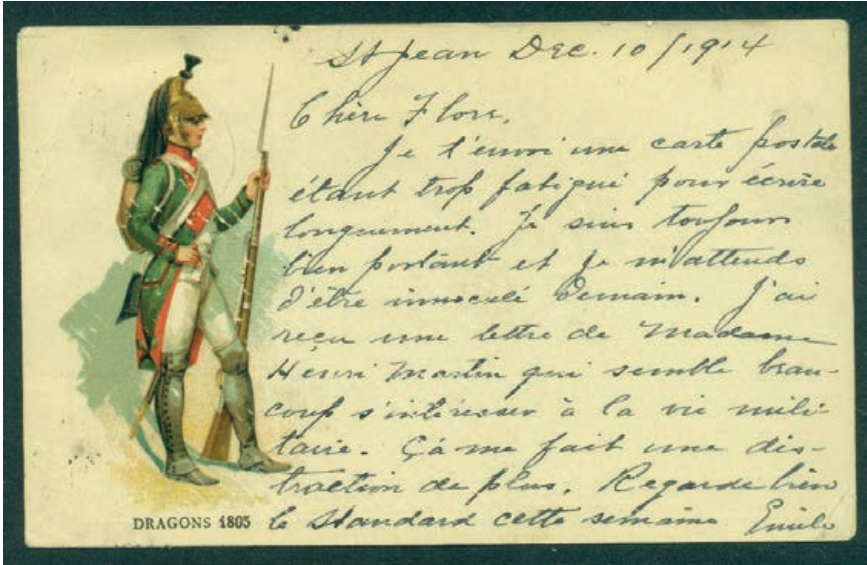 St Jean Dec. 10/1914
Chère Flore,
Je t'envoi une carte postale
étant trop fatigué pour écrire
longuement. Je suis toujours
bien portant et je m'attends
d'être innoculé demain. J'ai
reçu une lettre de Madame
Henri Martin qui semble beau-
coup s'intéresser à la vie mili-
taire. Ça me fait une dis-
traction de plus. Regarde bien
le Standard cette semaine Emile
DRAGONS 1805